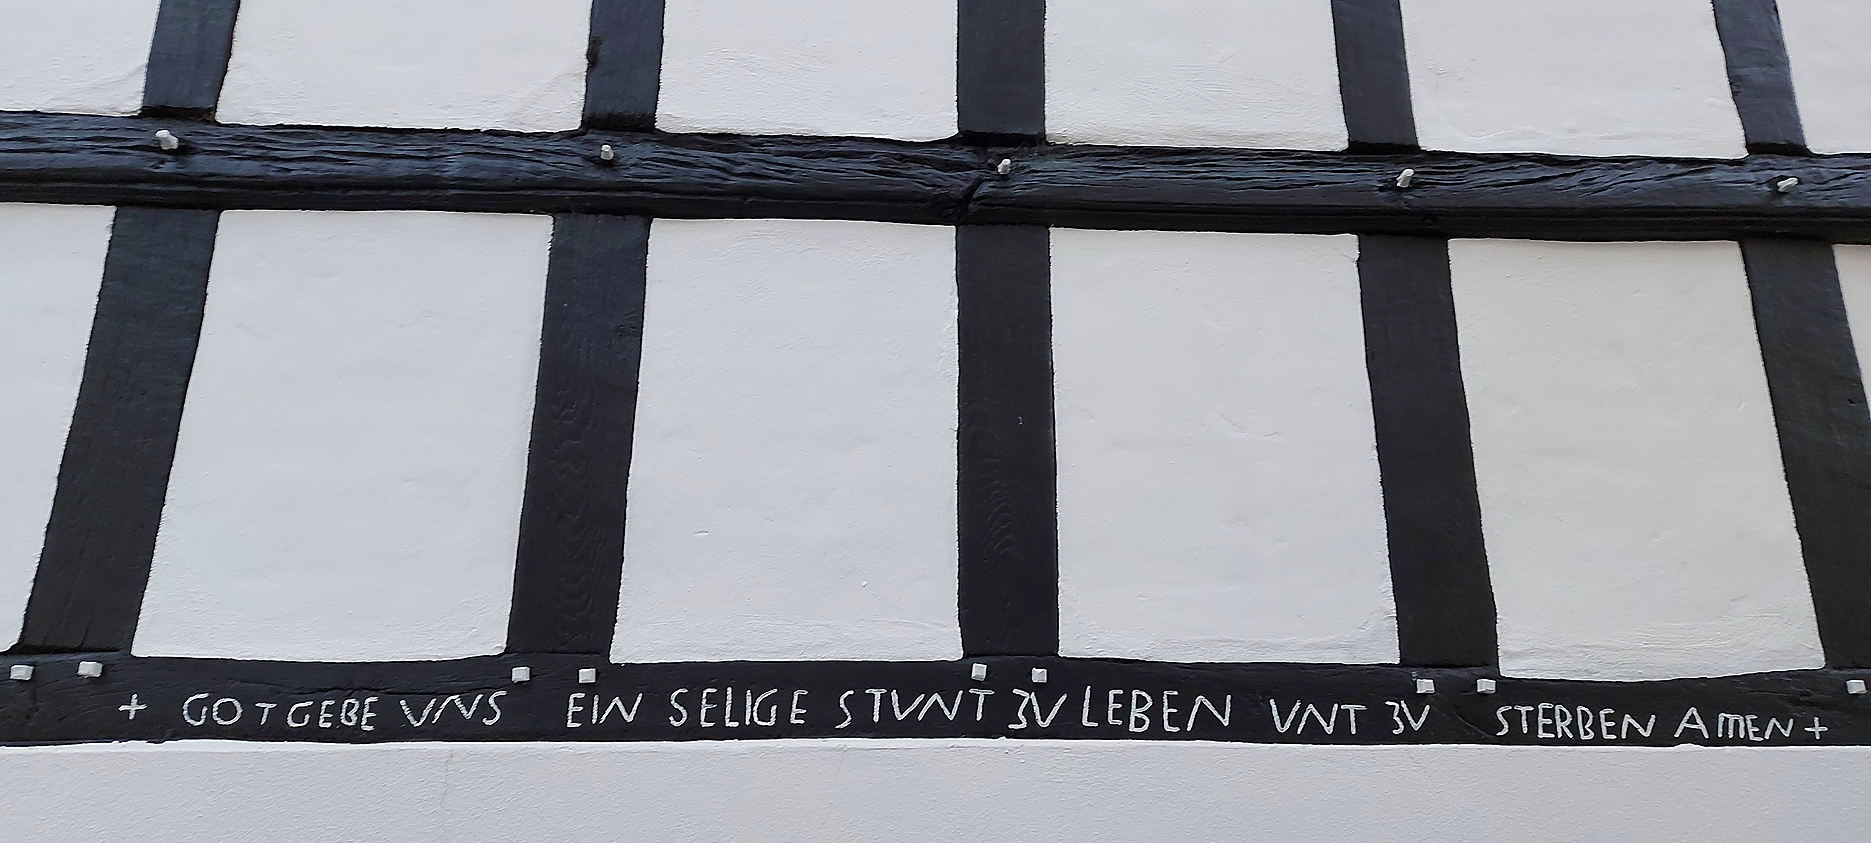 + GOT GEBE VNS EIN SELIGE STVNT ZV LEBEN VNT ZV STERBEN AMEN +